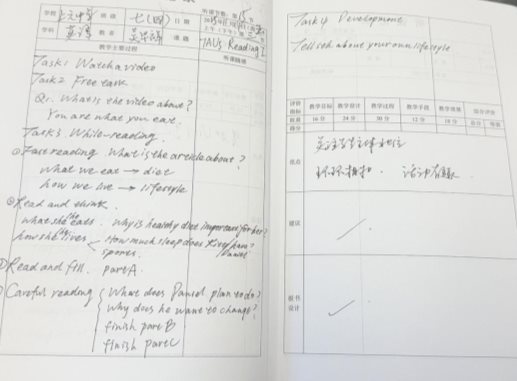 学校 中学 班级 七(四) 日期
听课节数: 第 15 节
学科 英语 姓名 课题 7AU5 Reading 1
教学主要过程 听课随感
Task1 Watch a video
Task2 Free task.
Q1. What is the video about?
You are what you eat.
Task3 While-reading.
①Fast reading What is the article about?
what we eat → diet
how we live → lifestyle
②Read and think.
what she/he eats Why is healthy diet important for her?
how she/he lives < How much sleep does Kitty/Daniel have?
sports.
Read and fill. part A
Careful reading { What does Daniel plan to do?
Why does he want to change?
finish part B
finish part C
Task4 Development
Tell us about your own lifestyle
评价指标 教学目标 教学设计 教学过程 教学手段 教学效果 综合评价
权重 16分 24分 30分 12分 18分 总分 等第
得分
优点
关注学生主体地位
环环相扣. 活动
建议
板书设计